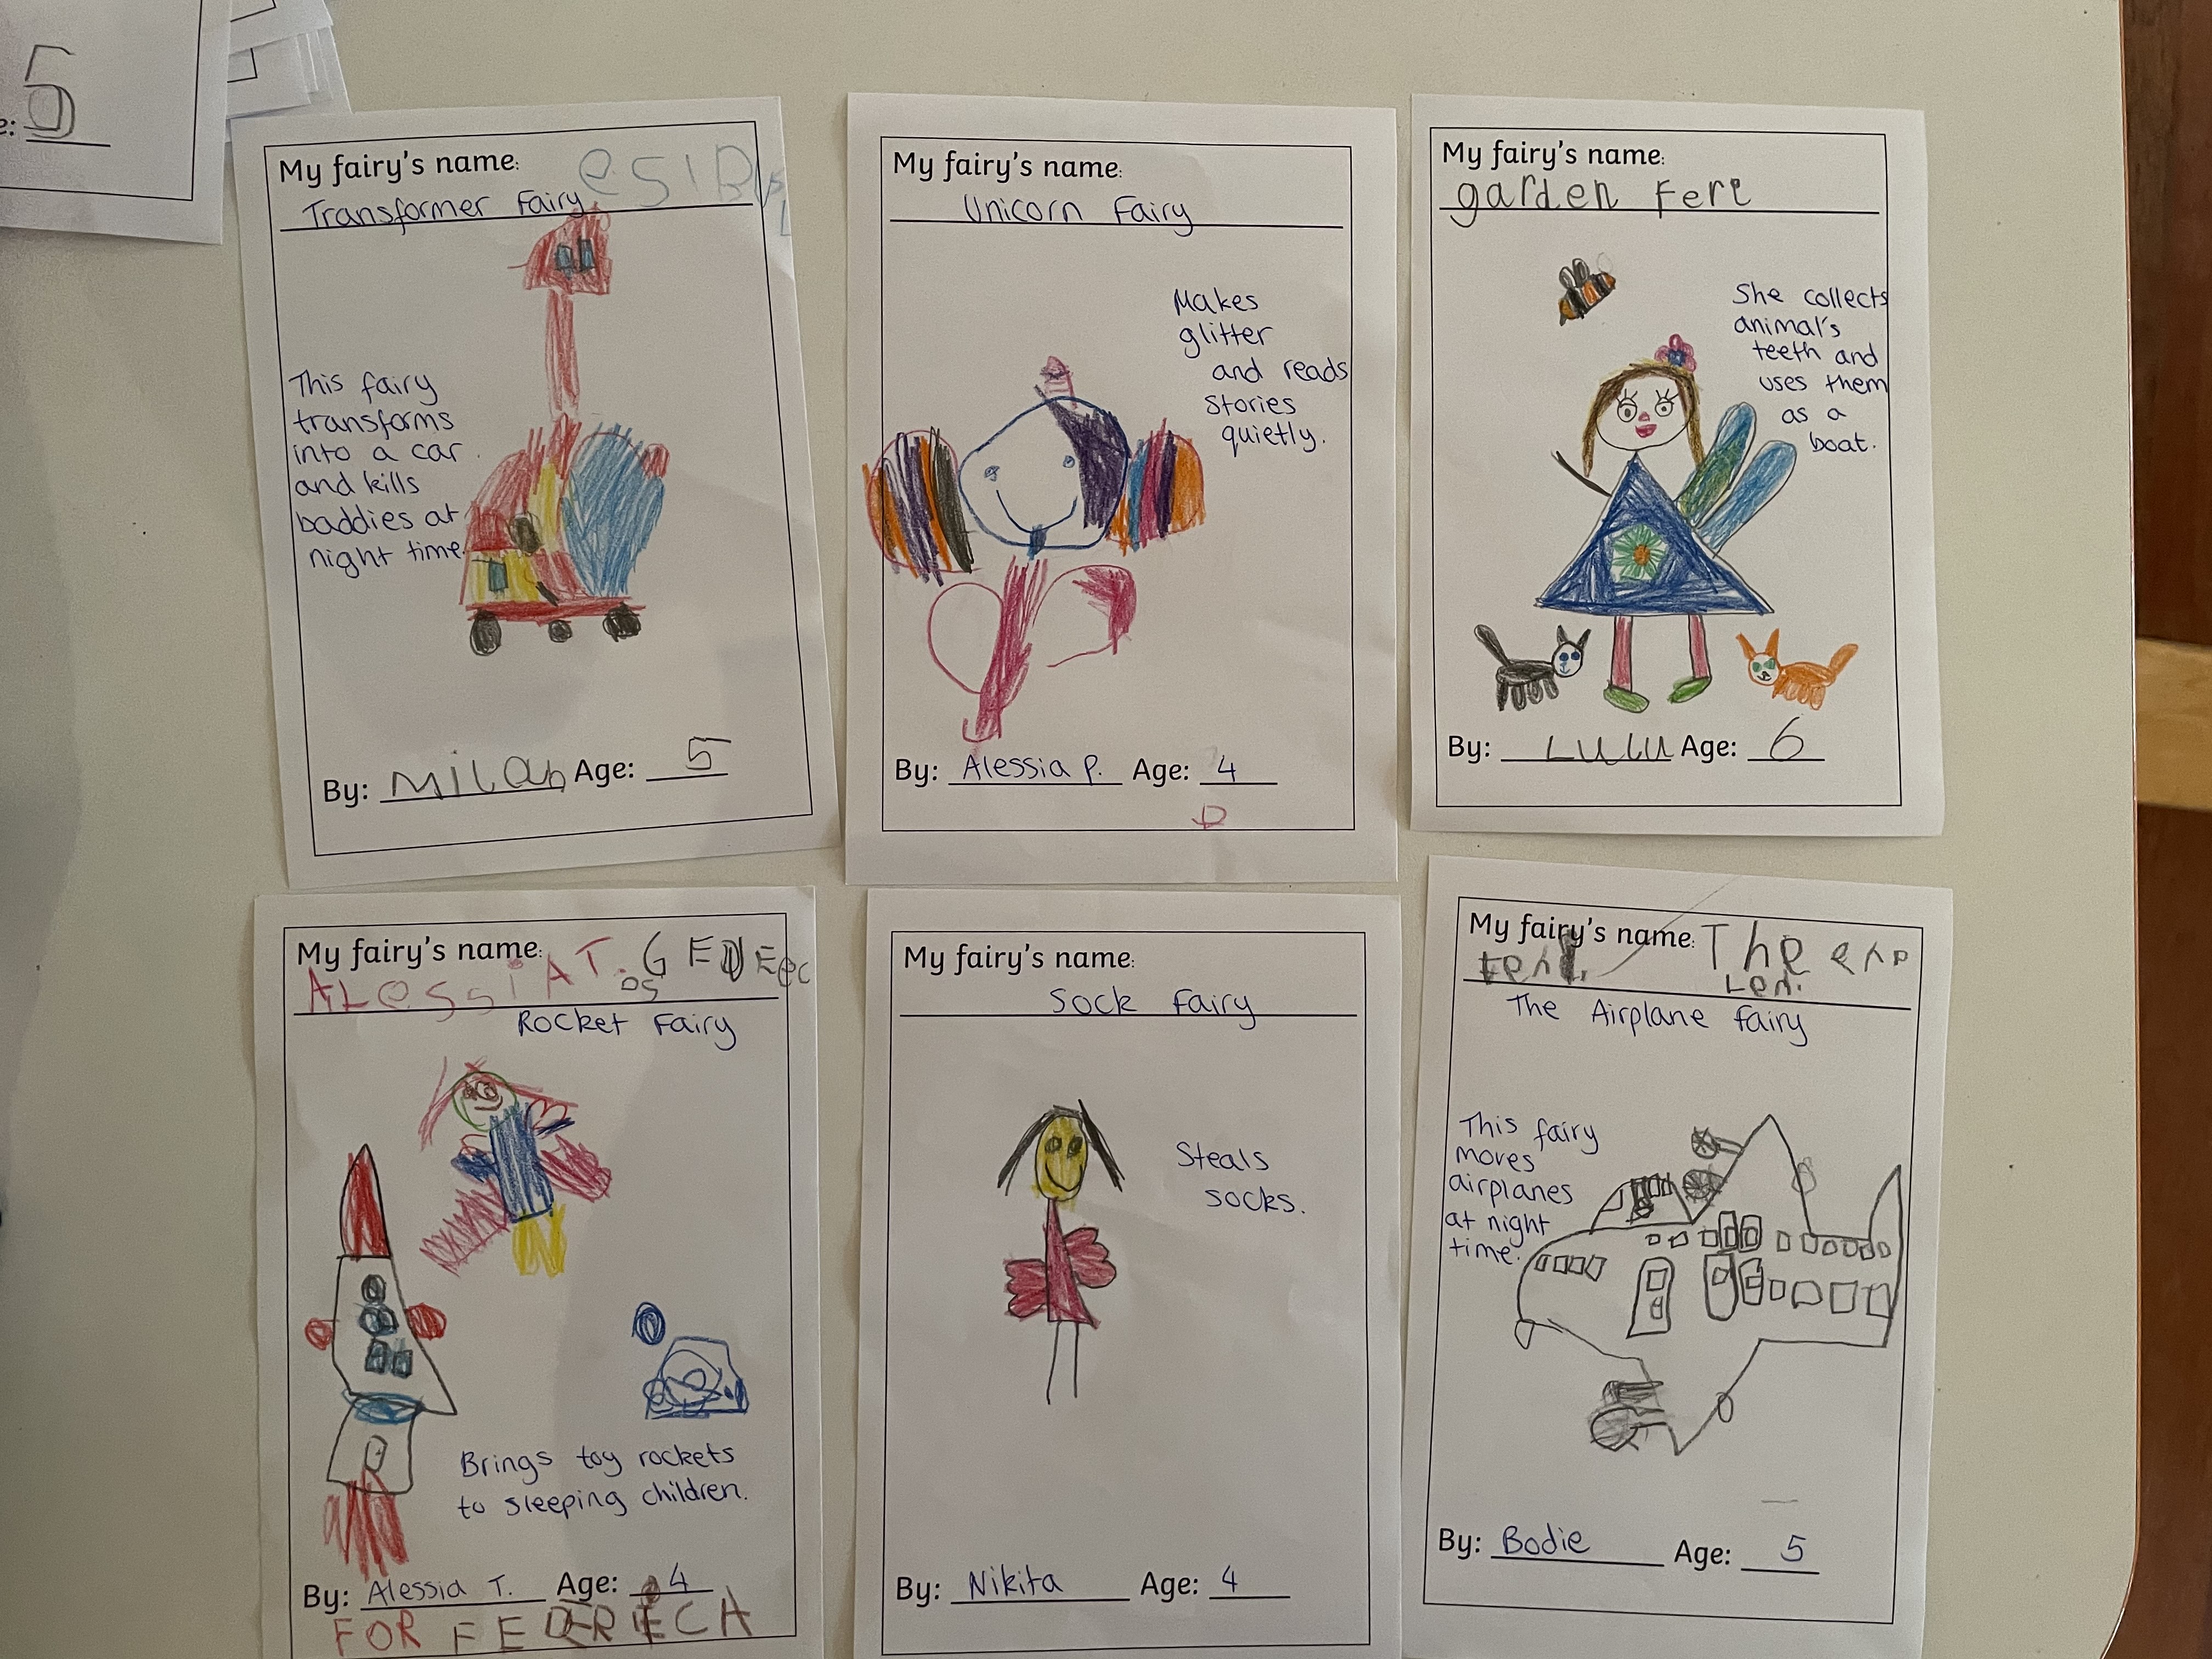 5
e:
My fairy's name:
Transformer Fairy
This fairy
transforms
into a car
and kills
baddies at
night time.
By: Milan Age: 5
My fairy's name:
Unicorn Fairy
Makes
glitter
and reads
stories
quietly.
By: Alessia P. Age: 4
My fairy's name:
garden Fere
She collects
animal's
teeth and
uses them
as a
boat.
By: LuLu Age: 6
My fairy's name:
ALessiA T.
Rocket Fairy
Brings toy rockets
to sleeping children.
By: Alessia T. Age: 4
FOR FEDERECA
My fairy's name:
Sock Fairy
Steals
socks.
By: Nikita Age: 4
My fairy's name: The
The Airplane Fairy
This fairy
moves
airplanes
at night
time.
By: Bodie Age: 5